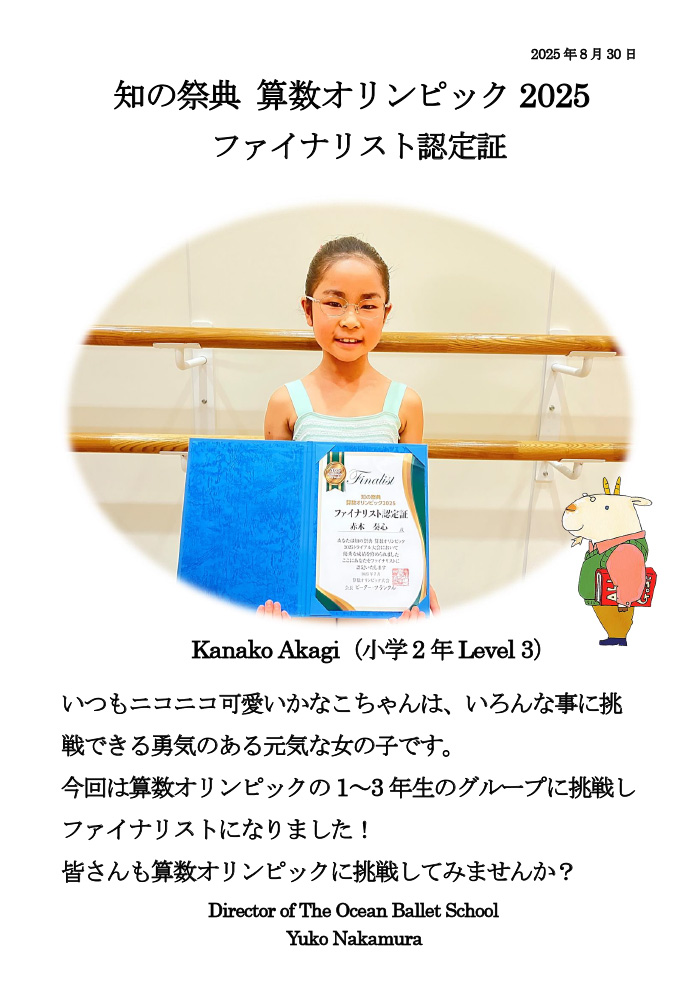 2025年8月30日
知の祭典 算数オリンピック 2025
ファイナリスト認定証
Finalist
知の祭典
算数オリンピック2025
ファイナリスト認定証
Kanako Akagi（小学2年 Level 3）
いつもニコニコ可愛いかなこちゃんは、いろんな事に挑
戦できる勇気のある元気な女の子です。
今回は算数オリンピックの1～3年生のグループに挑戦し
ファイナリストになりました！
皆さんも算数オリンピックに挑戦してみませんか？
Director of The Ocean Ballet School
Yuko Nakamura